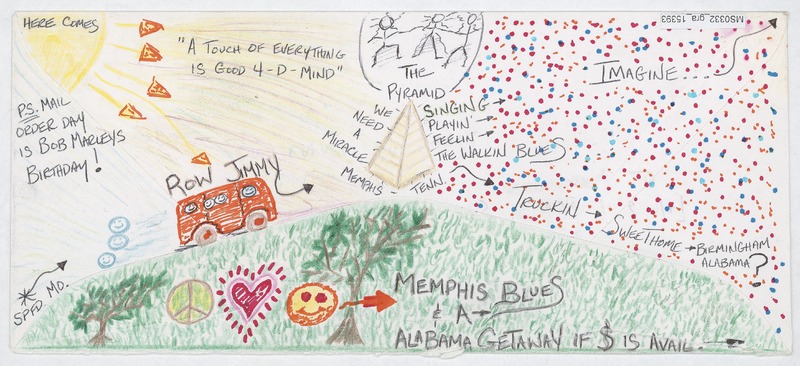 HERE COMES
"A TOUCH OF EVERYTHING
IS GOOD 4-D-MIND"
P.S. MAIL
ORDER DAY
IS BOB MARLEYS
BIRTHDAY!
THE
PYRAMID
WE
NEED
A
MIRACLE
MEMPHIS
TENN.
SINGING
PLAYIN'
FEELIN
THE WALKIN BLUES
MS0332_gra_15393
IMAGINE....
ROW JIMMY
TRUCKIN
SWEET HOME
BIRMINGHAM
ALABAMA?
SPFD MO.
MEMPHIS BLUES
& A
ALABAMA GETAWAY IF $ IS AVAIL.